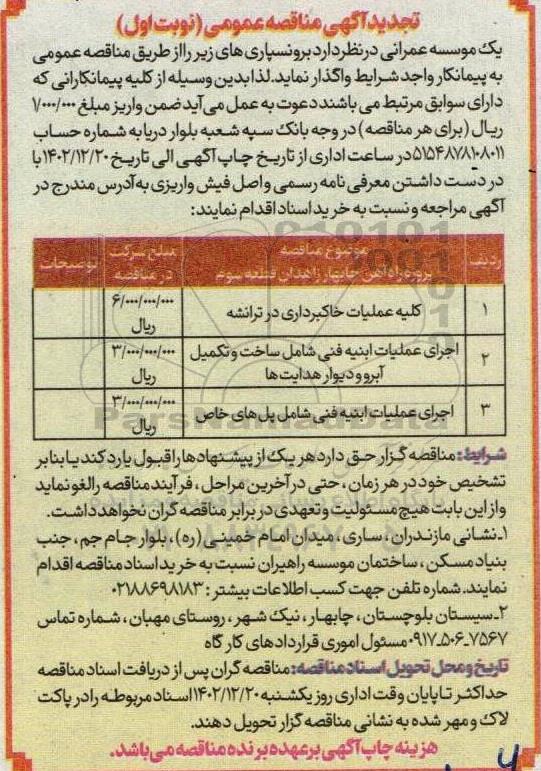 تجدید آگهی مناقصه عمومی (نوبت اول)
یک موسسه عمرانی در نظر دارد برونسپاری های زیر را از طریق مناقصه عمومی
به پیمانکار واجد شرایط واگذار نماید. لذا بدین وسیله از کلیه پیمانکارانی که
دارای سوابق مرتبط می باشند دعوت به عمل می آید ضمن واریز مبلغ ۱/۰۰۰/۰۰۰
ریال (برای هر مناقصه) در وجه بانک سپه شعبه بلوار دریا به شماره حساب
۵۱۵۴۸۷۸۱۰۸۰۱۱ در ساعت اداری از تاریخ چاپ آگهی الی تاریخ ۱۴۰۲/۱۲/۲۰ با
در دست داشتن معرفی نامه رسمی و اصل فیش واریزی به آدرس مندرج در
آگهی مراجعه و نسبت به خرید اسناد اقدام نمایند:
ردیف | موضوع مناقصه پروژه راه آهن چابهار زاهدان قطعه سوم | مبلغ شرکت در مناقصه | توضیحات
۱ | کلیه عملیات خاکبرداری در ترانشه | ۶/۰۰۰/۰۰۰/۰۰۰ ریال
۲ | اجرای عملیات ابنیه فنی شامل ساخت و تکمیل آبرو و دیوار هدایت ها | ۳/۰۰۰/۰۰۰/۰۰۰ ریال
۳ | اجرای عملیات ابنیه فنی شامل پل های خاص | ۳/۰۰۰/۰۰۰/۰۰۰ ریال
ParsNamadData
شرایط: مناقصه گزار حق دارد هر یک از پیشنهادها را قبول یا رد کند یا بنابر
تشخیص خود در هر زمان، حتی در آخرین مراحل، فرآیند مناقصه را لغو نماید
و از این بابت هیچ مسئولیت و تعهدی در برابر مناقصه گران نخواهد داشت.
۱ـ نشانی مازندران، ساری، میدان امام خمینی (ره)، بلوار جام جم، جنب
بنیاد مسکن، ساختمان موسسه راهیران نسبت به خرید اسناد مناقصه اقدام
نمایند. شماره تلفن جهت کسب اطلاعات بیشتر: ۰۲۱۸۸۶۹۸۱۸۳
۲ـ سیستان بلوچستان، چابهار، نیک شهر، روستای مهبان، شماره تماس
۰۹۱۷ـ۵۰۶ـ۷۵۶۷ مسئول اموری قراردادهای کارگاه
تاریخ و محل تحویل اسناد مناقصه: مناقصه گران پس از دریافت اسناد مناقصه
حداکثر تا پایان وقت اداری روز یکشنبه ۱۴۰۲/۱۲/۲۰ اسناد مربوطه را در پاکت
لاک و مهر شده به نشانی مناقصه گزار تحویل دهند.
هزینه چاپ آگهی بر عهده برنده مناقصه می باشد.